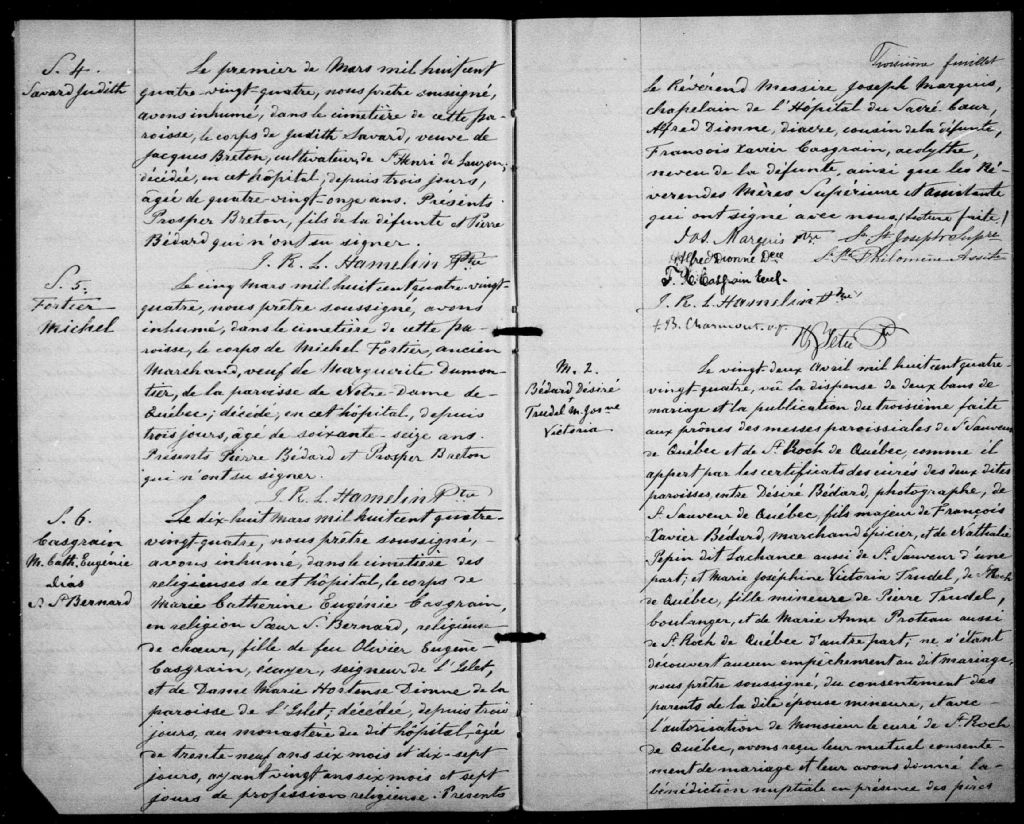 S. 4.
Savard Judith
Le premier de Mars mil huit cent
quatre-vingt-quatre, nous prêtre soussigné,
avons inhumé, dans le cimetière de cette pa-
roisse, le corps de Judith Savard, veuve de
Jacques Breton, cultivateur, de St Henri de Lauzon;
décédée, en cet hôpital, depuis trois jours,
âgée de quatre-vingt-onze ans. Présents
Prosper Breton, fils de la défunte et Pierre
Bédard qui n'ont su signer.
J. R. L. Hamelin Ptre
S. 5.
Fortier
Michel
Le cinq mars mil huit cent quatre-vingt-
quatre, nous prêtre soussigné, avons
inhumé, dans le cimetière de cette pa-
roisse, le corps de Michel Fortier, ancien
Marchand, veuf de Marguerite Dumon-
tier, de la paroisse de Notre-Dame de
Québec; décédé, en cet hôpital, depuis
trois jours, âgé de soixante-seize ans.
Présents Pierre Bédard et Prosper Breton
qui n'ont su signer.
J. R. L. Hamelin Ptre
S. 6.
Casgrain
M. Cath. Eugénie
dias
S. St Bernard
Le dix-huit mars mil huit cent quatre-
vingt-quatre, nous prêtre soussigné,
avons inhumé, dans le cimetière des
religieuses de cet hôpital, le corps de
Marie Catherine Eugénie Casgrain,
en religion Sœur St Bernard, religieuse
de chœur, fille de feu Olivier Eugène
Casgrain, écuyer, seigneur de l'Islet,
et de Dame Marie Hortense Dionne de la
paroisse de l'Islet; décédée, depuis trois
jours, au monastère du dit hôpital, âgée
de trente-neuf ans six mois et dix-sept
jours, ayant vingt ans six mois et sept
jours de profession religieuse. Présents
Troisième feuillet
le Révérend Messire Joseph Marquis,
chapelain de l'Hôpital du Sacré Cœur,
Alfred Dionne, diacre, cousin de la défunte,
François Xavier Casgrain, acolythe,
neveu de la défunte, ainsi que les Ré-
verendes Mères Supérieure et Assistante
qui ont signé avec nous (lecture faite.)
Jos. Marquis ptre
Sr St Joseph Supre
Alfred Dionne Dcre
S. Ste Philomène Assiste
F. X. Casgrain Eccl.
J. R. L. Hamelin Ptre
N. Tetu Ptre
M. 2.
Bédard Désiré
Trudel M. Josne
Victoria
Le vingt deux Avril mil huit cent quatre-
vingt quatre, vû la dispense de deux bans de
mariage et la publication du troisième faite
aux prônes des messes paroissiales de St Sauveur
de Québec et de St Roch de Québec, comme il
appert par les certificats des curés des deux dites
paroisses, entre Désiré Bédard, photographe, de
St Sauveur de Québec, fils majeur de François
Xavier Bédard, marchand épicier, et de Nathalie
Pépin dit Lachance aussi de St Sauveur d'une
part; et Marie Joséphine Victoria Trudel, de St Roch
de Québec, fille mineure de Pierre Trudel,
boulanger, et de Marie Anne Proteau aussi
de St Roch de Québec d'autre part, ne s'étant
découvert aucun empêchement au dit mariage,
nous prêtre soussigné, du consentement des
parents de la dite épouse mineure, et avec
l'autorisation de Monsieur le curé de St Roch
de Québec, avons reçu leur mutuel consente-
ment de mariage et leur avons donné la
bénédiction nuptiale en présence des pères